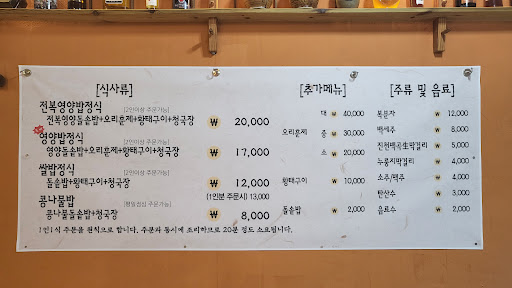 [식사류]
전복영양밥정식 (2인이상 주문가능)
전복영양돌솥밥+오리훈제+황태구이+청국장 ₩ 20,000
영양밥정식 (2인이상 주문가능)
영양돌솥밥+오리훈제+황태구이+청국장 ₩ 17,000
쌀밥정식 (2인이상 주문가능)
돌솥밥+황태구이+청국장 ₩ 12,000
(1인분 주문시) 13,000
콩나물밥 (평일점심 주문가능)
콩나물돌솥밥+청국장 ₩ 8,000
1인1식 주문을 원칙으로 합니다. 주문과 동시에 조리하므로 20분 정도 소요됩니다.
[추가메뉴]
오리훈제
대 ₩ 40,000
중 ₩ 30,000
소 ₩ 20,000
황태구이 ₩ 10,000
돌솥밥 ₩ 2,000
[주류 및 음료]
복분자 ₩ 12,000
백세주 ₩ 8,000
진천백곡生막걸리 ₩ 5,000
누룽지막걸리 ₩ 4,000
소주/맥주 ₩ 4,000
탄산수 ₩ 3,000
음료수 ₩ 2,000